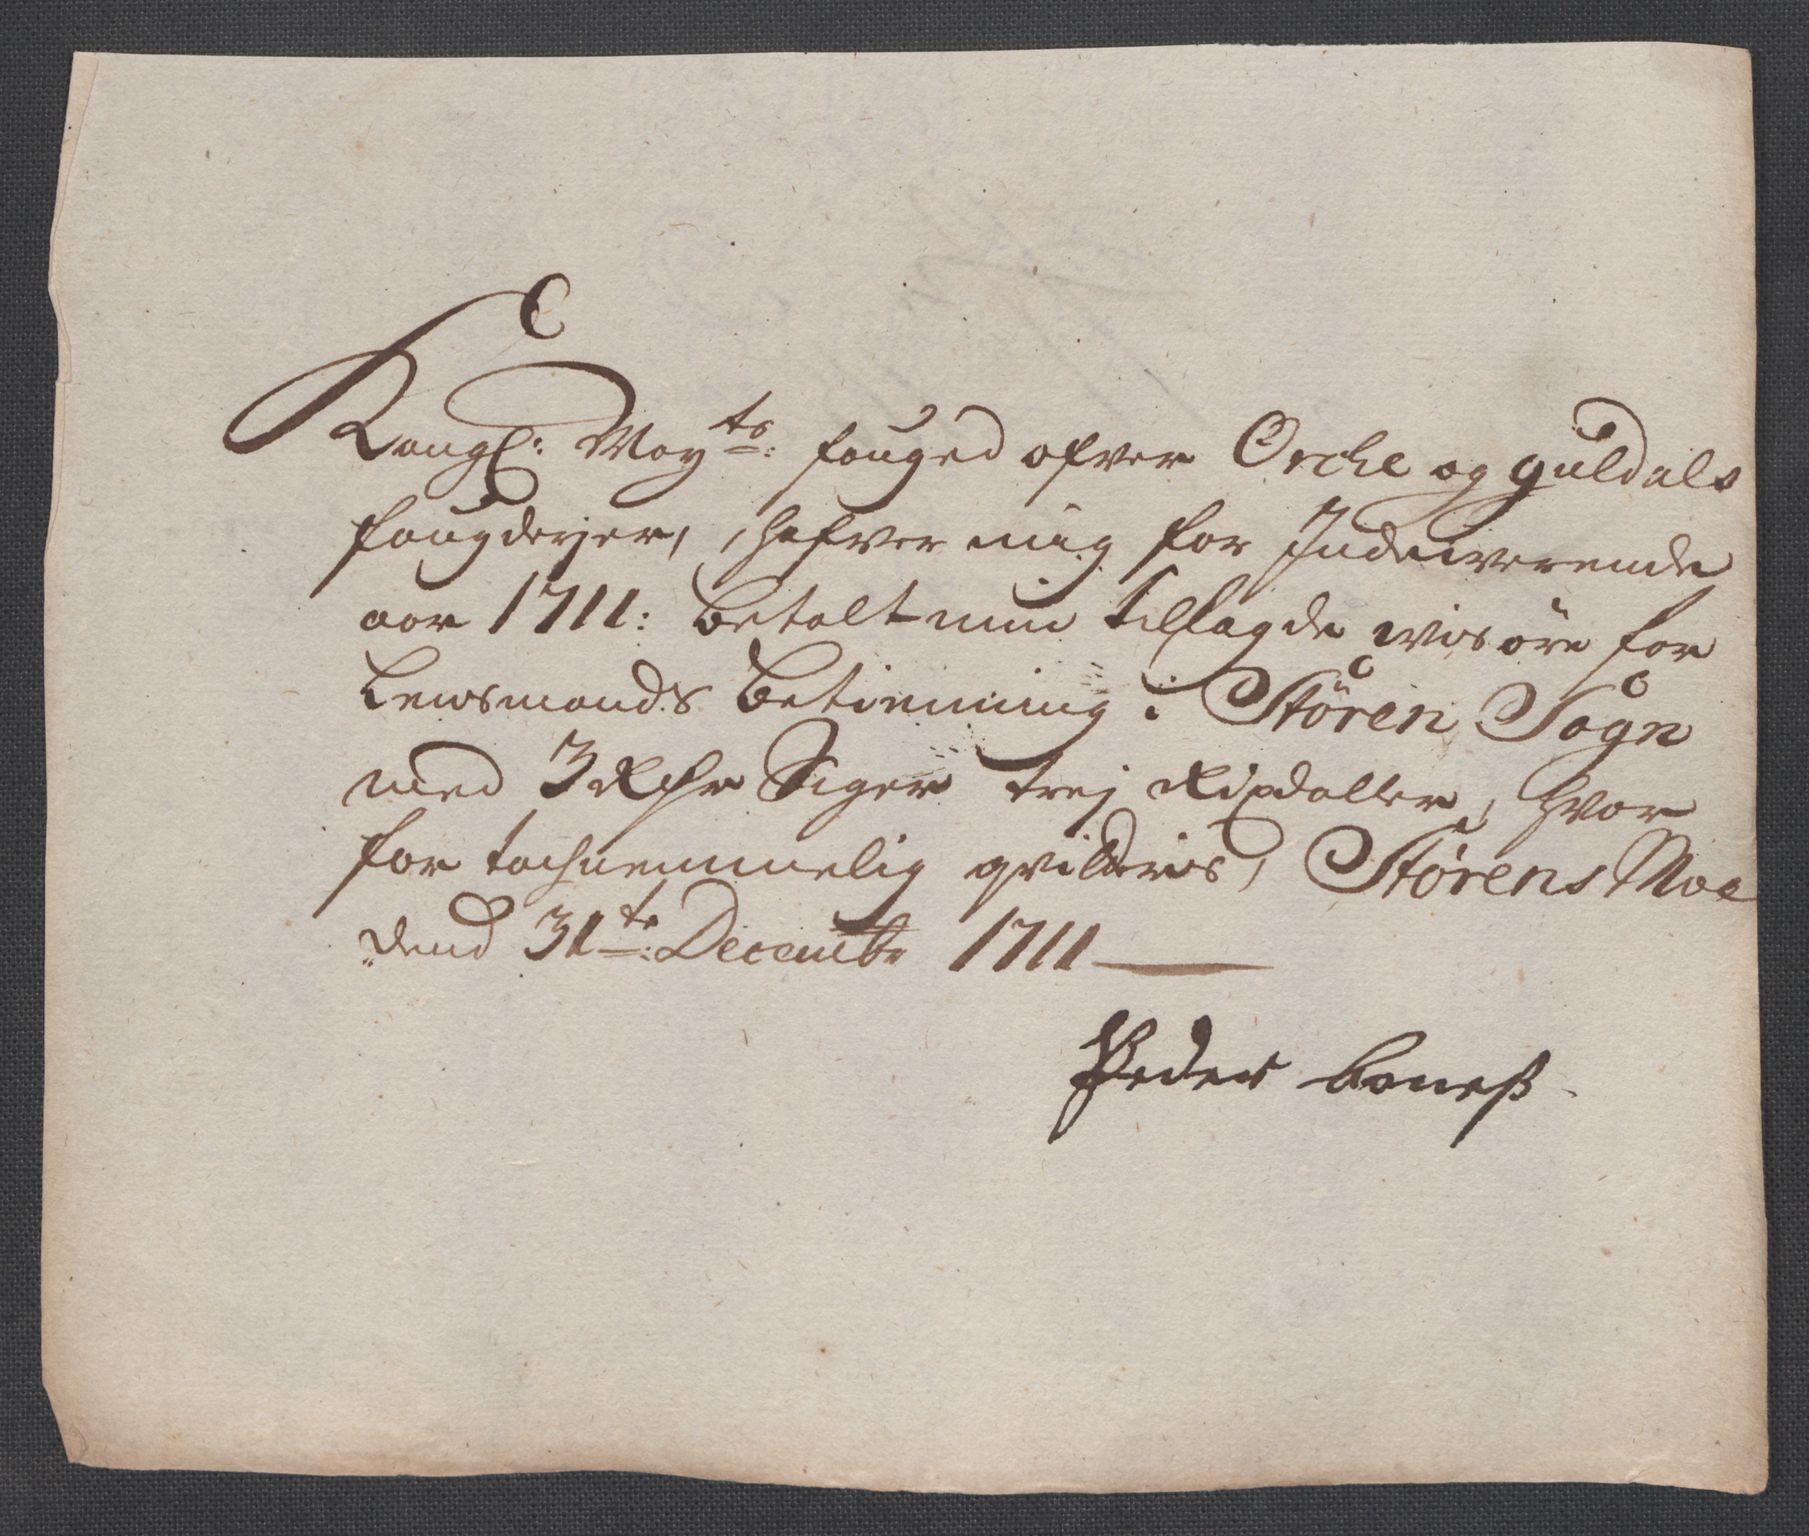 Kongl: May:ts fouged ofver Orche og guldals
fougderjer, hafver mig for Indeiverende
aar 1711: betalt min tillagde wisøre for
Lensmands betienning i Stören Sogn
med 3 Rdr Siger trej Rixdaller, hvor
for tachnemmelig qvitteris, Störens Moe
dend 31te: Decembr 1711
Peder